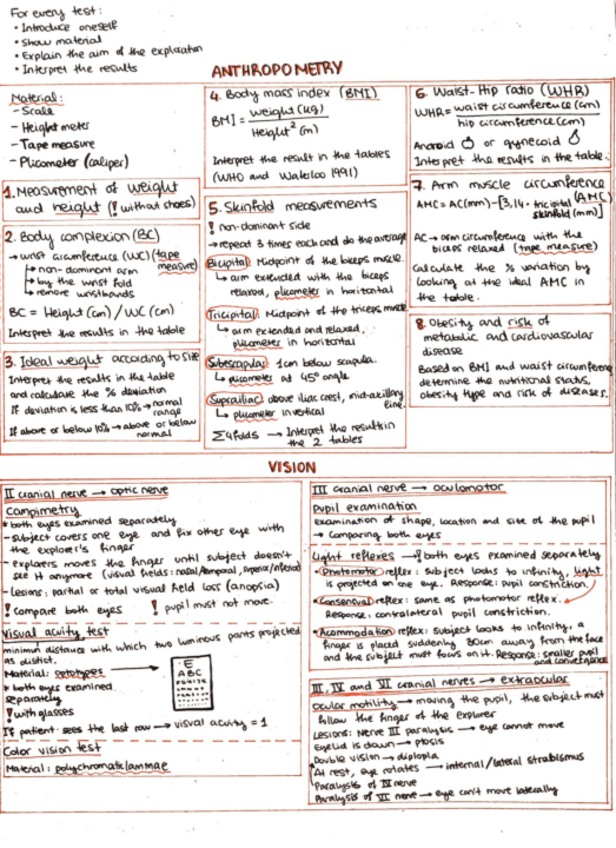 For every test:
• Introduce oneself
• Show material
• Explain the aim of the exploration
• Interpret the results
ANTHROPOMETRY
Material:
- Scale
- Height meter
- Tape measure
- Plicometer (caliper)
1. Measurement of weight
and height (! without shoes)
2. Body complexion (BC)
→ wrist circumference (WC) (tape
measure)
↳ non-dominant arm
↳ by the wrist fold
↳ remove wristbands
BC = Height (cm) / WC (cm)
Interpret the results in the table
3. Ideal weight according to size
Interpret the results in the table
and calculate the % deviation
If deviation is less than 10% → normal
range
If above or below 10% → above or below
normal
4. Body mass index (BMI)
BMI = weight (kg)
Height² (m)
Interpret the result in the tables
(WHO and Waterloo 1991)
5. Skinfold measurements
! non-dominant side
→ repeat 3 times each and do the average
Bicipital: Midpoint of the biceps muscle.
↳ arm extended with the biceps
relaxed, plicometer in horizontal
Tricipital: Midpoint of the triceps muscle
↳ arm extended and relaxed,
plicometer in horizontal
Subescapular: 1cm below scapula.
↳ plicometer at 45° angle
Suprailiac: above iliac crest, mid-axillary
line.
↳ plicometer in vertical
Σ4 folds → Interpret the results in
the 2 tables
6. Waist-Hip ratio (WHR)
WHR = waist circumference (cm)
hip circumference (cm)
Android or gynecoid
Interpret the results in the table.
7. Arm muscle circumference
(AMC)
AMC = AC(mm) - [3,14 · tricipital
skinfold (mm)]
AC → arm circumference with the
biceps relaxed (tape measure)
Calculate the % variation by
looking at the ideal AMC in
the table.
8. Obesity and risk of
metabolic and cardiovascular
disease
Based on BMI and waist circumference
determine the nutritional status,
obesity type and risk of diseases.
VISION
II cranial nerve → optic nerve
Campimetry
* both eyes examined separately
- subject covers one eye and fix other eye with
the explorer's finger
- explorers moves the finger until subject doesn't
see it anymore (visual fields: nasal/temporal, superior/inferior)
- Lesions: partial or total visual field loss (anopsia)
! compare both eyes ! pupil must not move.
Visual acuity test
minimun distance with which two luminous points projected
as distict.
Material: optotypes
* both eyes examined
separately
! with glasses
If patient sees the last row → visual acuity = 1
E
ABC
Color vision test
Material: polychromatic lammae
III cranial nerve → oculomotor
Pupil examination
Examination of shape, location and size of the pupil
→ Comparing both eyes
Light reflexes → ! both eyes examined separately
• Photomotor reflex: subject looks to infinity, light
projected on one eye. Response: pupil constriction.
• Consensual reflex: same as photomotor reflex.
Response: contralateral pupil constriction.
• Acommodation reflex: Subject looks to infinity, a
finger is placed suddenly 30cm away from the face
and the subject must focus on it. Response: smaller pupil
and convergence
III, IV and VI cranial nerves → extraocular
Ocular motility → moving the pupil, the subject must
follow the finger of the explorer
Lesions: Nerve III paralysis → eye cannot move
Eyelid is down → ptosis
Double vision → diplopia
At rest, eye rotates → internal/lateral strabismus
Paralysis of IV nerve
Paralysis of VI nerve → eye can't move laterally